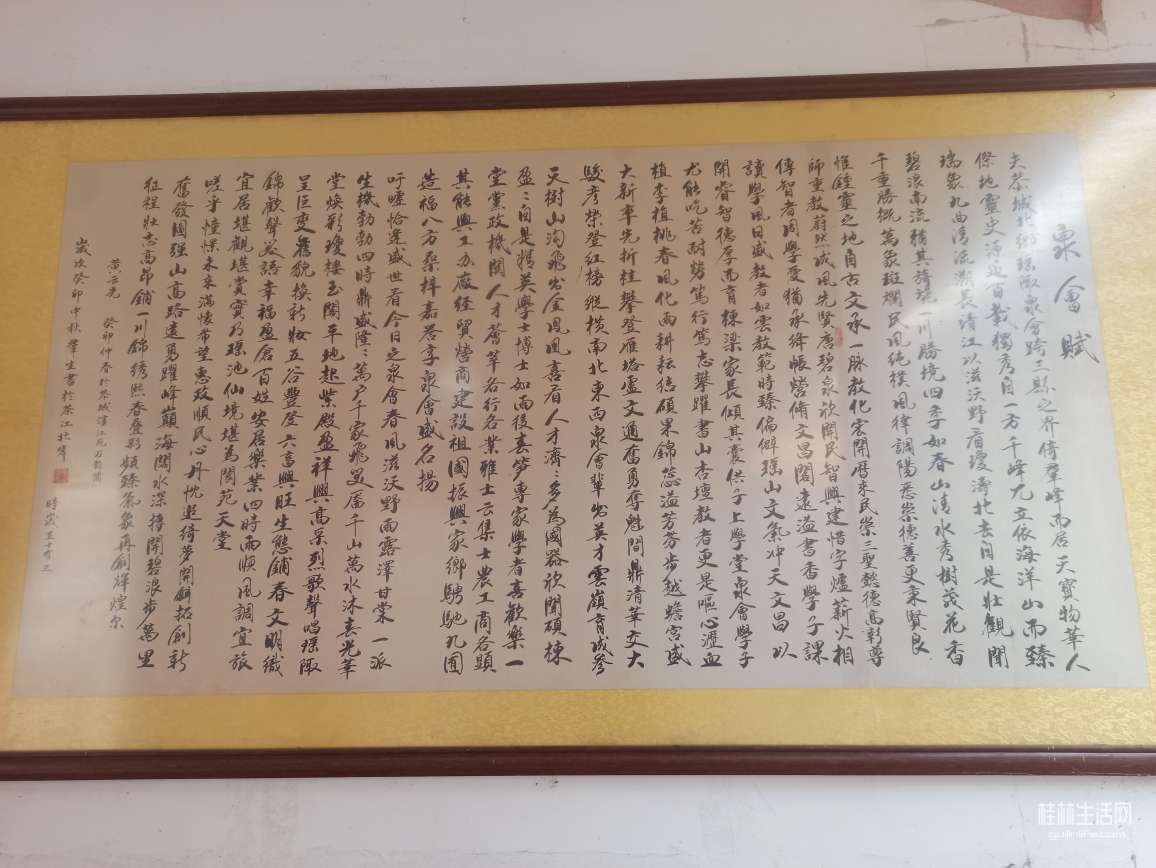 泉會賦
夫恭城北鄉瑤陬泉會跨三縣之介倚羣峰而居天寶物華人
傑地靈史源逾百載獨秀自一方千峰兀立依海洋山而臻
瑞象九曲清流漸長清江以滋沃野看瓊濤北去自是壯觀聞
碧浪南流猶其詩境一川勝境四季如春山清水秀樹茂花香
千重勝概萬象斑斕民風純樸風律調陽悉崇德善更秉賢良
惟鍾靈之地自古文承一脉教化宏開厯來民崇三聖懿德高彰尊
師重教蔚然成風先賢唐碧泉欣開民智興建惜字爐薪火相
傳智者周學愛猶承絳帳營脩文昌閣遠溢書香學子課
讀學風日盛教者如雲教範時臻偏僻瑤山文氣冲天文昌以
開睿智德厚而育棟梁家長傾其憂供子上學堂泉會學子
尤能吃苦耐勞篤行篤志攀躍書山杏壇教者更是嘔心瀝血
植李植桃春風化雨耕耘結碩果錦蕊溢芬芳步越蟾宮盛
大新事先折桂攀登雁塔盧文通奮勇奪魁問鼎清華交大
駿彥榮登紅榜縱橫南北東西泉會輩出英才雲嶺育成參
天樹山溝飛出金鳳凰喜看人才濟濟多為國器欣聞碩棟
盈盈自是精英學士博士如雨後春笋專家學者喜歡樂一
堂黨政機關人才薈萃各行各業雅士雲集士農工商各顯
其能興工办廠經貿營商建設祖國振興家鄉騁馳九囿
造福八方桑梓嘉譽享泉會盛名揚
吁噓恰逢盛世看今日之泉會春風滋沃野雨露澤甘棠一派
生機勃勃四時鼎盛隆隆萬户千家飛笑靨千山萬水沐春光華
堂煥彩瓊樓玉閣平地起紫殿盈祥興高采烈歌聲唱瑤陬
呈巨變舊貌換新妝五谷豐登六畜興旺生態鋪春文明織
錦歡聲笑語幸福盈倉百姓安居樂業四時雨順風調宜旅
宜居堪觀堪賞實乃瑤池仙境堪為閬苑天堂
嗟乎憧憬未来滿懷希望惠政順民心丹忱逐綺夢開闢拓創新
奮發圖强山高路遠勇躍峰巔海闊水深搏開碧浪步萬里
征程壯志高昂鋪一川錦綉熙春疊彩頻臻氣象再創輝煌尔
黄云光 癸卯仲春於恭城濱江苑石韵閣
歲次癸卯中秋肇生書於茶江北岸
時歲五十有三
桂林生活网